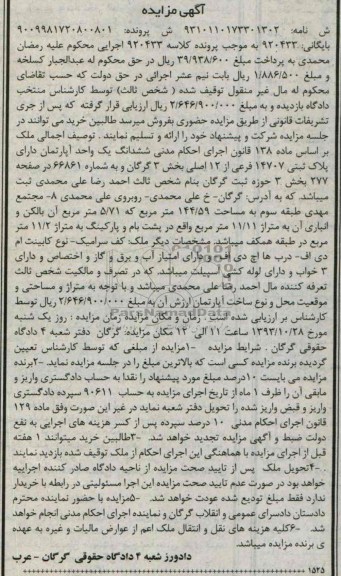 آگهی مزایده
ش نامه: ۹۳۱۰۱۱۰۱۷۳۳۰۱۳۰۲ ش پرونده: ۹۰۰۹۹۸۱۷۲۰۸۰۰۸۰۱
بایگانی: ۹۲۰۴۳۳ به موجب پرونده کلاسه ۹۲۰۴۳۳ اجرایی محکوم علیه رمضان
محمدی به پرداخت مبلغ ۳۹/۹۳۸/۶۰۰ ریال در حق محکوم له عبدالجبار کسلخه
و مبلغ ۱/۸۸۶/۵۰۰ ریال بابت نیم عشر اجرائی در حق دولت که حسب تقاضای
محکوم له مال غیر منقول توقیف شده ( شخص ثالث) توسط کارشناس منتخب
دادگاه بازدیده و به مبلغ ۲/۶۴۶/۹۰۰/۰۰۰ ریال ارزیابی قرار گرفته که پس از جری
تشریفات قانونی از طریق مزایده حضوری بفروش میرسد طالبین خرید می توانند در
جلسه مزایده شرکت و پیشنهاد خود را ارائه و تسلیم نمایند . توصیف اجمالی ملک
بر اساس ماده ۱۳۸ قانون اجرای احکام مدنی ششدانگ یک واحد آپارتمان دارای
پلاک ثبتی ۱۴۷۰۷ فرعی از ۱۲ اصلی بخش ۳ گرگان و به شماره ۶۶۸۶۱ در صفحه
۲۷۷ بخش ۳ حوزه ثبت گرگان بنام شخص ثالث احمد رضا علی محمدی ثبت
میباشد. که به آدرس: گرگان- خ علی محمدی- روبروی علی محمدی ۸- مجتمع
مهدی طبقه سوم به مساحت ۱۴۴/۵۹ متر مربع که ۵/۷۱ متر مربع آن بالکن و
انباری آن به متراژ ۱۱/۱۱ متر مربع واقع در پشت بام و پارکینگ به متراژ ۱۱/۲ متر
مربع در طبقه همکف میباشد. مشخصات دیگر ملک: کف سرامیک- نوع کابینت ام
دی اف- درب ها اچ دی اف - دارای امتیاز آب و برق و گاز و اختصاص و دارای
۳ خواب و دارای لوله کشی اسپیلت میباشد. که در تصرف و مالکیت شخص ثالث
تعرفه کننده مال احمد رضا علی محمدی میباشد و با توجه به متراژ و مساحتی و
موقعیت محل و نوع ساخت آپارتمان ارزش آن به مبلغ ۲/۶۴۶/۹۰۰/۰۰۰ ریال توسط
کارشناس بر ارزیابی شده است. زمان و مکان مزایده: زمان مزایده : روز یک شنبه
مورخ ۱۳۹۳/۱۰/۲۸ ساعت ۱۱ الی ۱۲ مکان مزایده: گرگان دفتر شعبه ۴ دادگاه
حقوقی گرگان . شرایط مزایده : ۱-مزایده از مبلغی که توسط کارشناس تعیین
گردیده برنده مزایده کسی است که بالاترین مبلغ را در جلسه مزایده نماید. ۲-برنده
مزایده می بایست ۱۰درصد مبلغ مورد پیشنهاد را نقدا به حساب دادگستری واریز و
مابقی آن را ظرف ۱ ماه از تاریخ اجرای مزایده به حساب ۹۰۶۱۱ سپرده دادگستری
واریز و قبض واریز شده را تحویل دفتر شعبه نماید در غیر این صورت وفق ماده ۱۲۹
قانون اجرای احکام مدنی ۱۰ درصد سپرده پس از کسر هزینه های اجرایی به نفع
دولت ضبط و آگهی مزایده تجدید خواهد شد. ۳-طالبین خرید میتوانند ۱ هفته
قبل از اجرای مزایده با هماهنگی این اجرای احکام از ملک توقیف شده بازدید نمایند
. ۴-تحویل ملک پس از تایید صحت مزایده از ناحیه دادگاه صادر کننده اجراییه
خواهد بود در صورت عدم تایید صحت مزایده این اجرا مسئولیتی در رابطه با خریدار
ندارد فقط مبلغ تودیع شده عودت خواهد شد. ۵-مزایده با حضور نماینده محترم
دادستان دادسرای عمومی و انقلاب گرگان و نماینده اجرای احکام مدنی انجام خواهد
شد. ۶-کلیه هزینه های نقل و انتقال ملک اعم از عوارض مالیات و غیره به عهده
ی برنده مزایده میباشد.
دادورز شعبه ۴ دادگاه حقوقی گرگان - عرب
۱۵۲۵